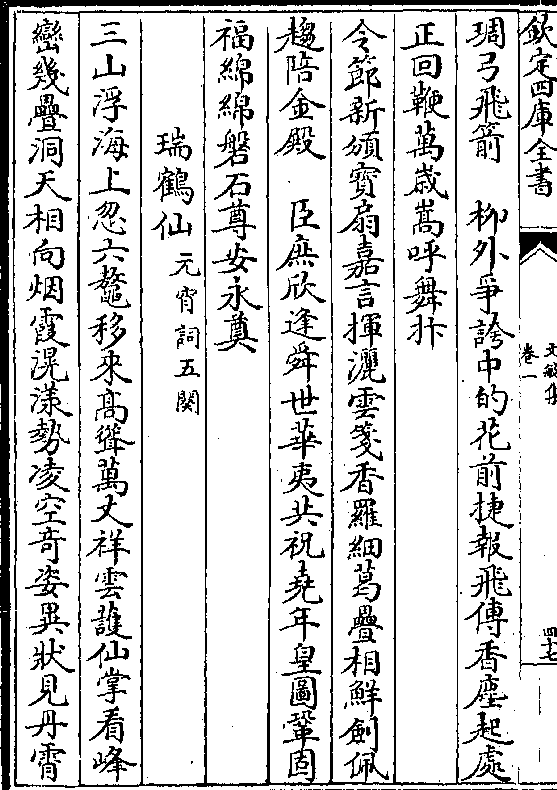 欽定四庫全書
文敏集
卷一
四十七
琱弓飛箭　柳外爭誇中的花前捷報飛傳香塵起處
正回鞭萬歲嵩呼舞抃
令節新頒寶扇嘉言揮灑雲箋香羅細葛疊相鮮劍佩
趨陪金殿　臣庶欣逢舜世華夷共祝堯年皇圖鞏固
福綿綿磐石尊安永奠
瑞鶴仙元宵詞五闋
三山浮海上忽六鼇移來髙聳萬丈祥雲護仙掌看峰
巒幾疊洞天相向烟霞滉漾勢凌空竒姿異狀見丹霄